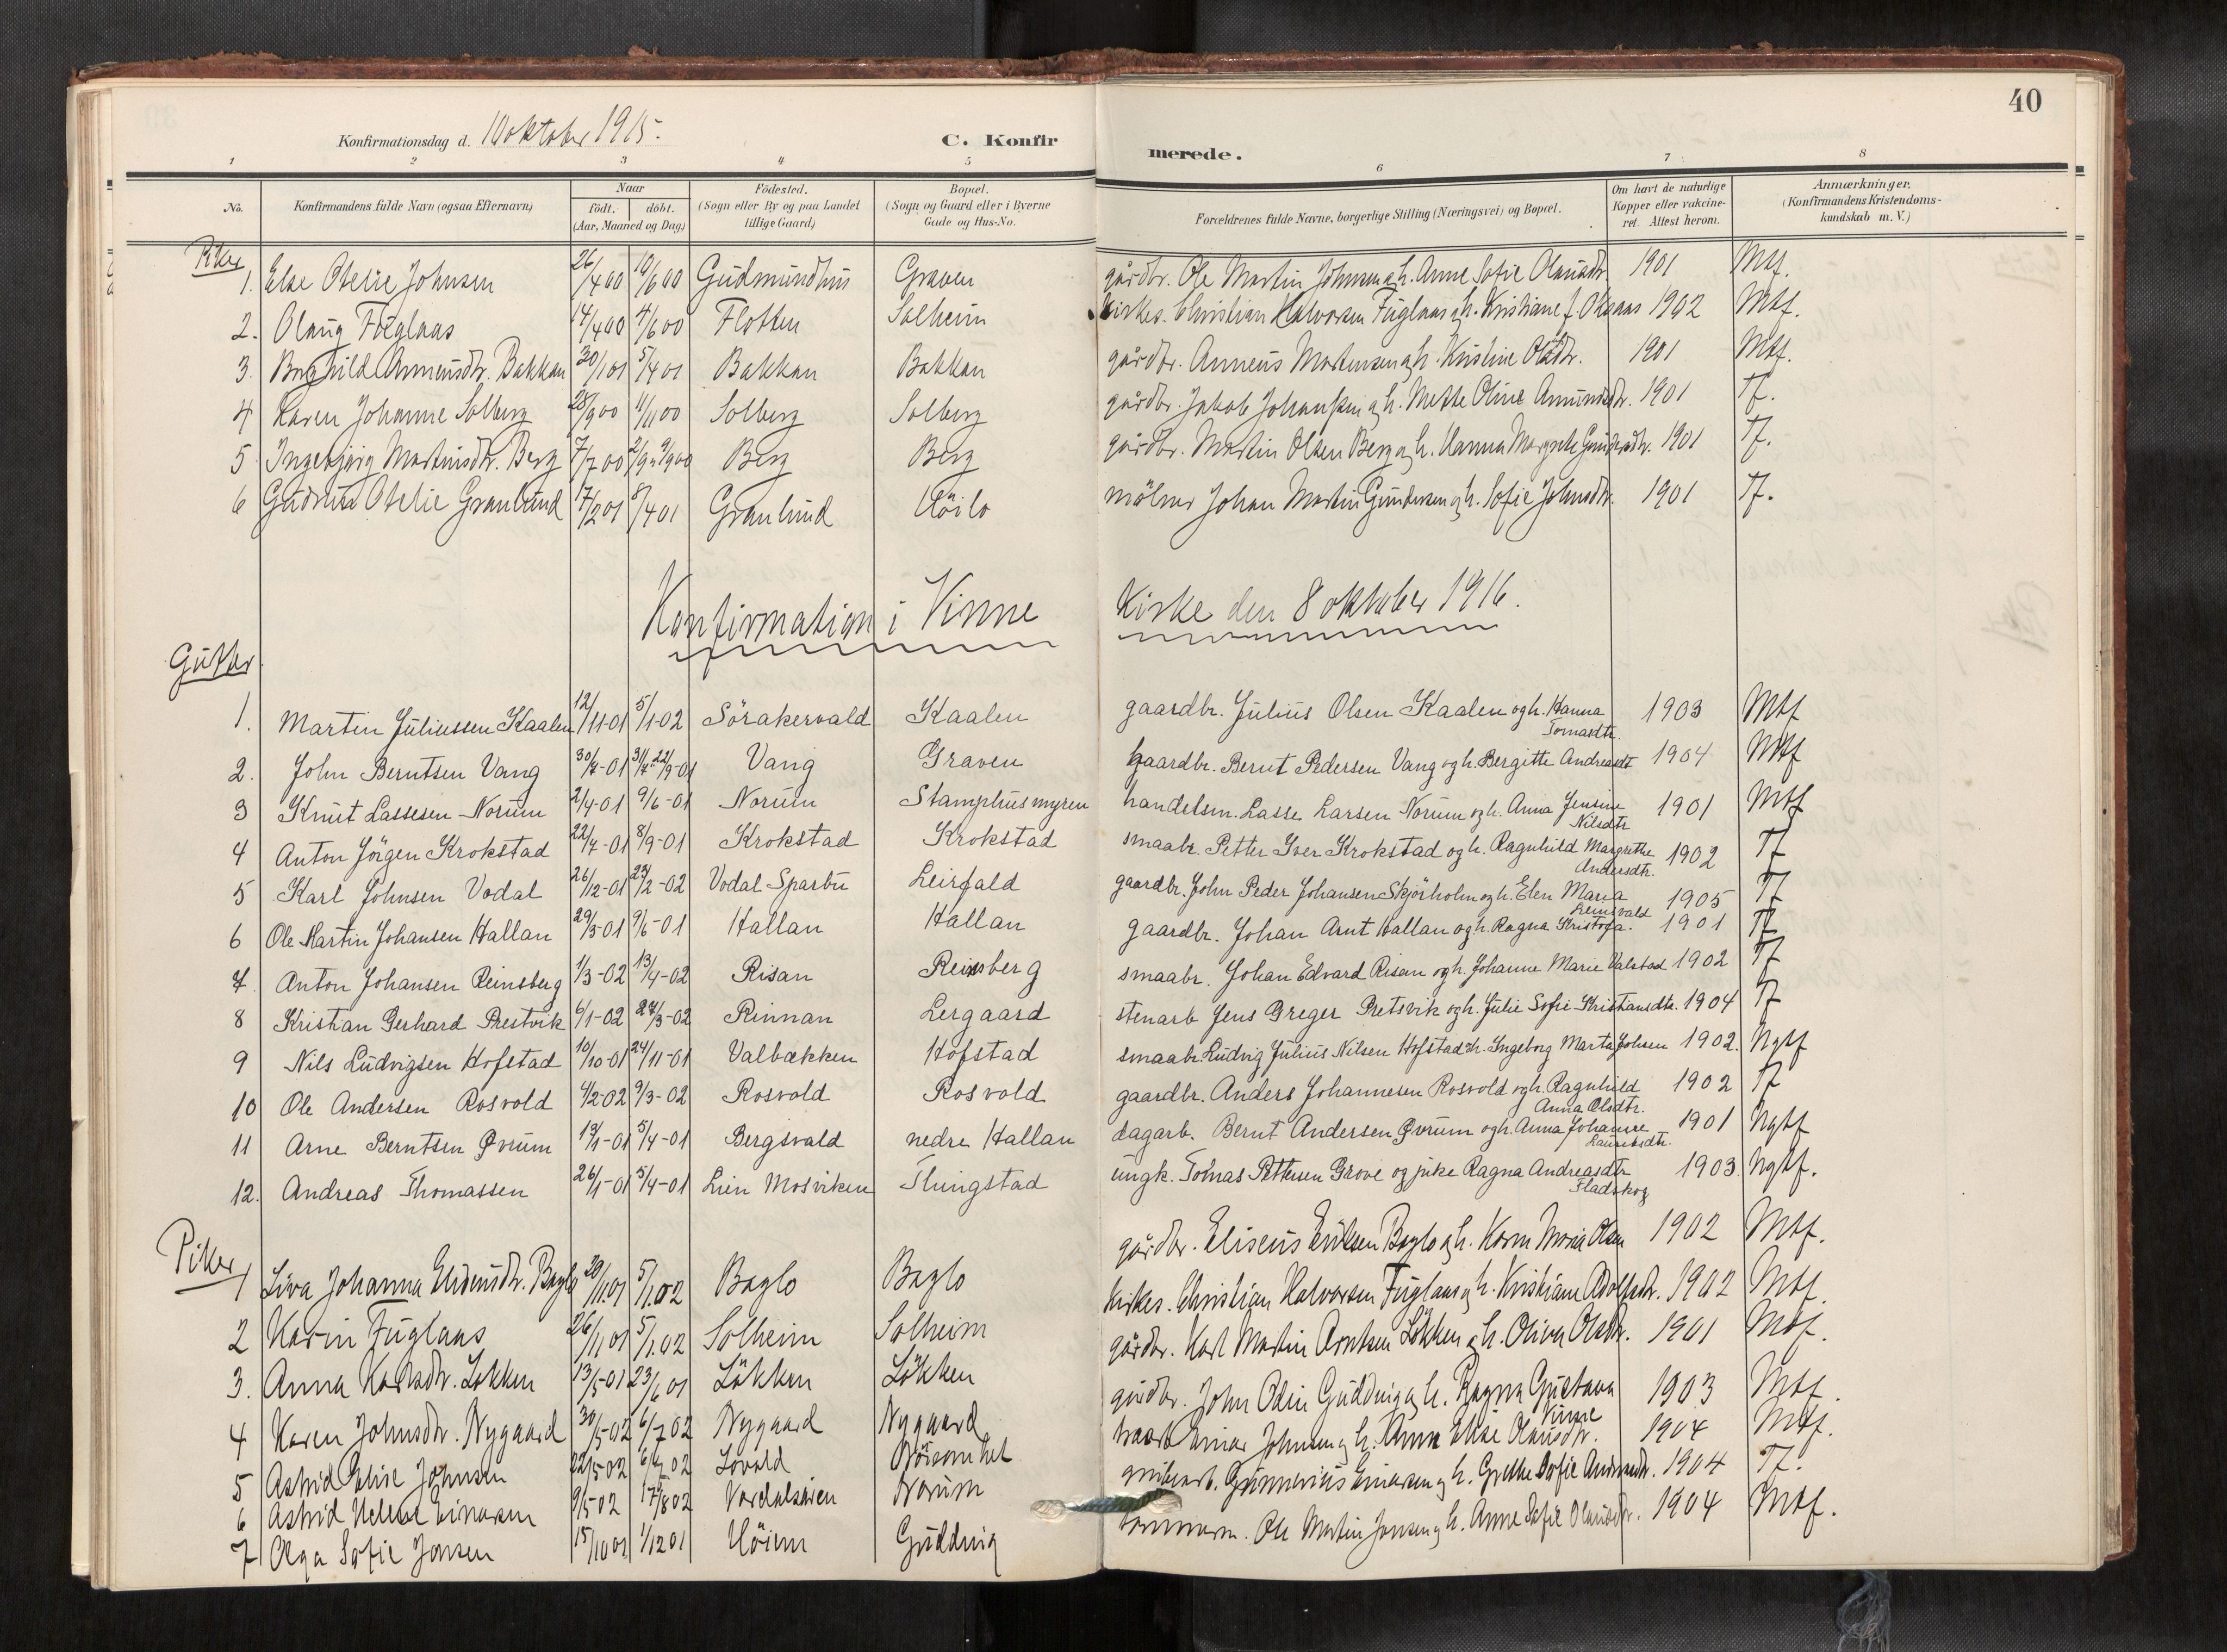 40
Konfirmationsdag d. 10 oktober 1915.
C. Konfir
merede.
1 2 3 4 5 6 7 8
No. Konfirmandens fulde Navn (ogsaa Efternavn) Naar födt, döbt. (Aar, Maaned og Dag) Födested. (Sogn eller By og paa Landet tillige Gaard) Bopæl. (Sogn og Gaard eller i Byerne Gade og Hus-No. Forældrenes fulde Navne, borgerlige Stilling (Næringsvei) og Bopæl. Om havt de naturlige Kopper eller vakcineret. Attest herom. Anmærkninger. (Konfirmandens Kristendomskundskab m. V.)
Piker
1. Else Otelie Johnsen 26/4 00 10/6 00 Gudmundhus Graven gårdbr. Ole Martin Johnsen og h. Anne Sofie Olausdtr. 1901 Mtf.
2. Olaug Fuglaas 14/4 00 4/6 00 Flotten Solheim kirkes. Christian Halvorsen Fuglaas og h. Kristiane f. 1902 Mtf.
3. Borghild Anneusdtr. Bakkan 30/1 01 5/4 01 Bakkan Bakkan gårdbr. Anneus Martensen og h. Kristine Olsdtr. 1901 Mtf.
4 Karen Johanne Solberg 28/9 00 11/11 00 Solberg Solberg gårdbr. Jakob Johanssen og h. Mette Oline Amundsdtr. 1901 Tf.
5 Ingebjörg Martinsdtr. Berg 7/7 00 2/9 - 9/9 00 Berg Berg gårdbr. Martin Olsen Berg og h. Hanna Margrete 1901 Tf.
6 Gudrun Otelie Granlund 17/2 01 8/4 01 Granlund Höilo mölner Johan Martin Gundersen og h. Sofie Johnsdtr. 1901 Tf.
Konfirmation i Vinne Kirke den 8 oktober 1916.
Gutter
1. Martin Juliussen Kaalen 12/11-01 5/1-02 Sörakervald Kaalen gaardbr. Julius Olsen Kaalen og h. Hanna Tomasdtr. 1903 Mtf
2. John Berntsen Vang 30/7-01 31/7-22/9-01 Vang Graven gaardbr. Bernt Pedersen Vang og h. Bergitte Andreasdt 1904 Mtf
3 Knut Lassesen Norum 2/4-01 9/6-01 Norum Stamphusmyren handelsm. Lasse Larsen Norum og h. Anna Jensine Nilsdtr 1901 Mtf
4 Anton Jörgen Krokstad 22/7-01 8/9-01 Krokstad Krokstad smaabr. Petter Iver Krokstad og h. Ragnhild Margrethe Andersdtr. 1902 Tf
5 Karl Johnsen Vodal 26/12-01 23/2-02 Vodal Sparbu Leirfald gaardbr. John Peder Johansen Skjörholm og h. Elen Maria 1905 Tf
6 Ole Martin Johansen Hallan 29/3-01 9/6-01 Hallan Hallan gaardbr. Johan Arnt Hallan og h. Ragna Kristofa. 1901 Tf
7. Anton Johansen Reinsberg 1/3-02 13/4-02 Risan Reinsberg smaabr. Johan Edvard Risan og h. Johanne Marie Valstad 1902 Tf
8 Kristian Gerhard Prestvik 6/1-02 27/3-02 Rinnan Lergaard stenarb Jens Greger Pretsvik og h. Julie Sofie Kristiansdtr. 1904 Tf
9 Nils Ludvigsen Hofstad 10/10-01 24/11-01 Valbækken Hofstad smaabr. Ludvig Julius Nilsen Hofstad h. Ingeborg Marta Johsen 1902. Ngtf
10 Ole Andersen Rosvold 4/2-02 9/3-02 Rosvold Rosvold gaardbr. Anders Johannesen Rosvold og h. Ragnhild Anna Olsdtr. 1902 Tf
11 Arne Berntsen Øvrum 19/1-01 5/4-01 Bergsvald nedre Hallan dagarb. Bernt Andersen Øvrum og h. Anna Johanne Lauritsdtr. 1901 Ngtf
12. Andreas Thomassen 26/1-01 5/4-01 Lien Mosviken Thingstad ungk. Tomas Pettersen Grove og pike Ragna Andreasdtr Fladskog 1903. Ngtf.
Piker
1 Liva Johanna Eliseusdtr. Baglo 20/11.01 5/1.02 Baglo Baglo gårdbr. Eliseus Eriksen Baglo og h. Karen Maria Olsen 1902 Mtf.
2 Karin Fuglaas 26/11 01 5/1.02 Solheim Solheim kirkes. Christian Halvorsen Fuglaas og h. Kristiane Adolfsdtr. 1902 Mtf.
3. Anna Karlsdtr. Løkken 13/5-01 23/6 01 Lökken Lökken gårdbr. Karl Martin Arntsen Lökken og h. Oliva Olsdtr. 1901 Mtf.
4 Karen Johnsdtr. Nygaard 30/5-02 6/7 02 Nygaard Nygaard gårdbr. John Odin Gudding og h. Ragna Gustava Vinne 1903 Mtf.
5 Astrid Elise Johnsen 22/5 02 6/7 02 Lovald Einar Johnsen og h. Anna Elise Olausdtr. 1904 Mtf.
6 Astrid Helene Einarsen 9/5 02 17/8 02 Verdalsören Norum Gunnerius Einarsen og h. Grethe Sofie Andreasdtr. 1904 Tf.
7 Olga Sofie Jonsen 15/10 01 1/12 01 Höiem Gudding tömmerm. Ole Martin Jonsen og h. Anne Sofie Olausdtr. 1904 Mtf.